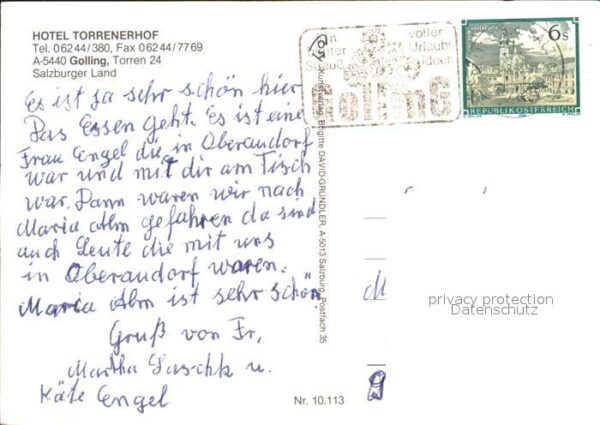 HOTEL TORRENERHOF
Tel. 06244/380, Fax 06244/7769
A-5440 Golling, Torren 24
Salzburger Land
Es ist ja sehr schön hier
Das Essen geht. Es ist eine
Frau Engel die in Oberaudorf
war und mit dir am Tisch
war. Dann waren wir nach
Maria Alm gefahren da sind
auch Leute die mit uns
in Oberaudorf waren.
Maria Alm ist sehr schön.
Gruß von Fr.
Martha Laschk u.
Käte Engel
Nr. 10.113
Brigitte DAVID-GRÜNDLER, A-5013 Salzburg, Postfach 35
voller
Urlaubs
GOLLING
6 S
REPUBLIK ÖSTERREICH
M
privacy protection
Datenschutz